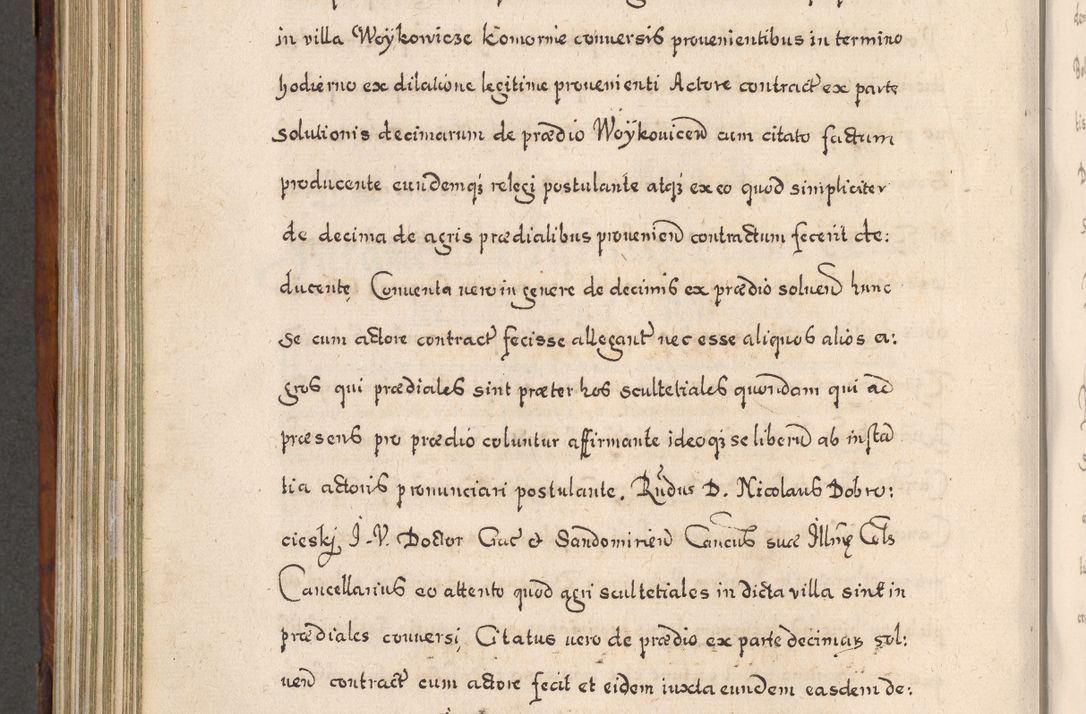 in villa Woÿkowicze komornie conversis provenientibus in termino
hodierno ex dilatione legitime provenienti Actore contract ex parte
solutionis decimarum de prædio Woÿkovicen cum citato factum
producente eundemq; relegi postulante atq; ex eo quod simpliciter
de decima de agris prædialibus provenien contractum fecerit de:
ducente Conventa vero in genere de decimis ex prædio solven hunc
se cum actore contract fecisse allegant nec esse aliquos alios a:
gros qui prædiales sint præter hos scultetiales quondam qui ad
præsens pro prædio coluntur affirmante ideoq; se liberu ab insta
tia actoris pronunciari postulante. Rndus D. Nicolaus Dobro:
cieskj J. V. Doctor Grac et Sandomirien Cancus suæ Illmę Cels
Cancellarius eo attento quod agri scultetiales in dicta villa sint in
prædiales conversi Citatus vero de prædio ex parte decimar sol:
ven contract cum actore fecit et eidem iuxta eundem easdem de: